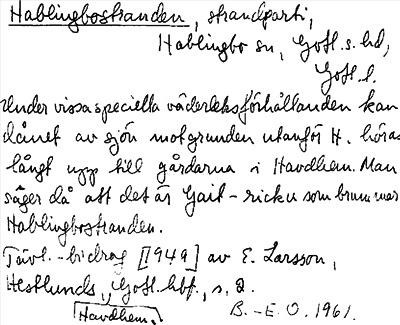 Hablingbostranden, strandparti,
Hablingbo sn, Gotl. s. hd,
Gotl. l.
Under vissa speciella väderleksförhållanden kan
dånet av sjön mot grunden utanför H. höras
långt upp till gårdarna i Havdhem. Man
säger då att det är Gait-ricku som brummar
Hablingbostranden.
Tävl.-bidrag [1949] av E. Larsson,
Hestlunds, Gotl. hbf., s. 2.
Havdhem. B.-E. O. 1961.